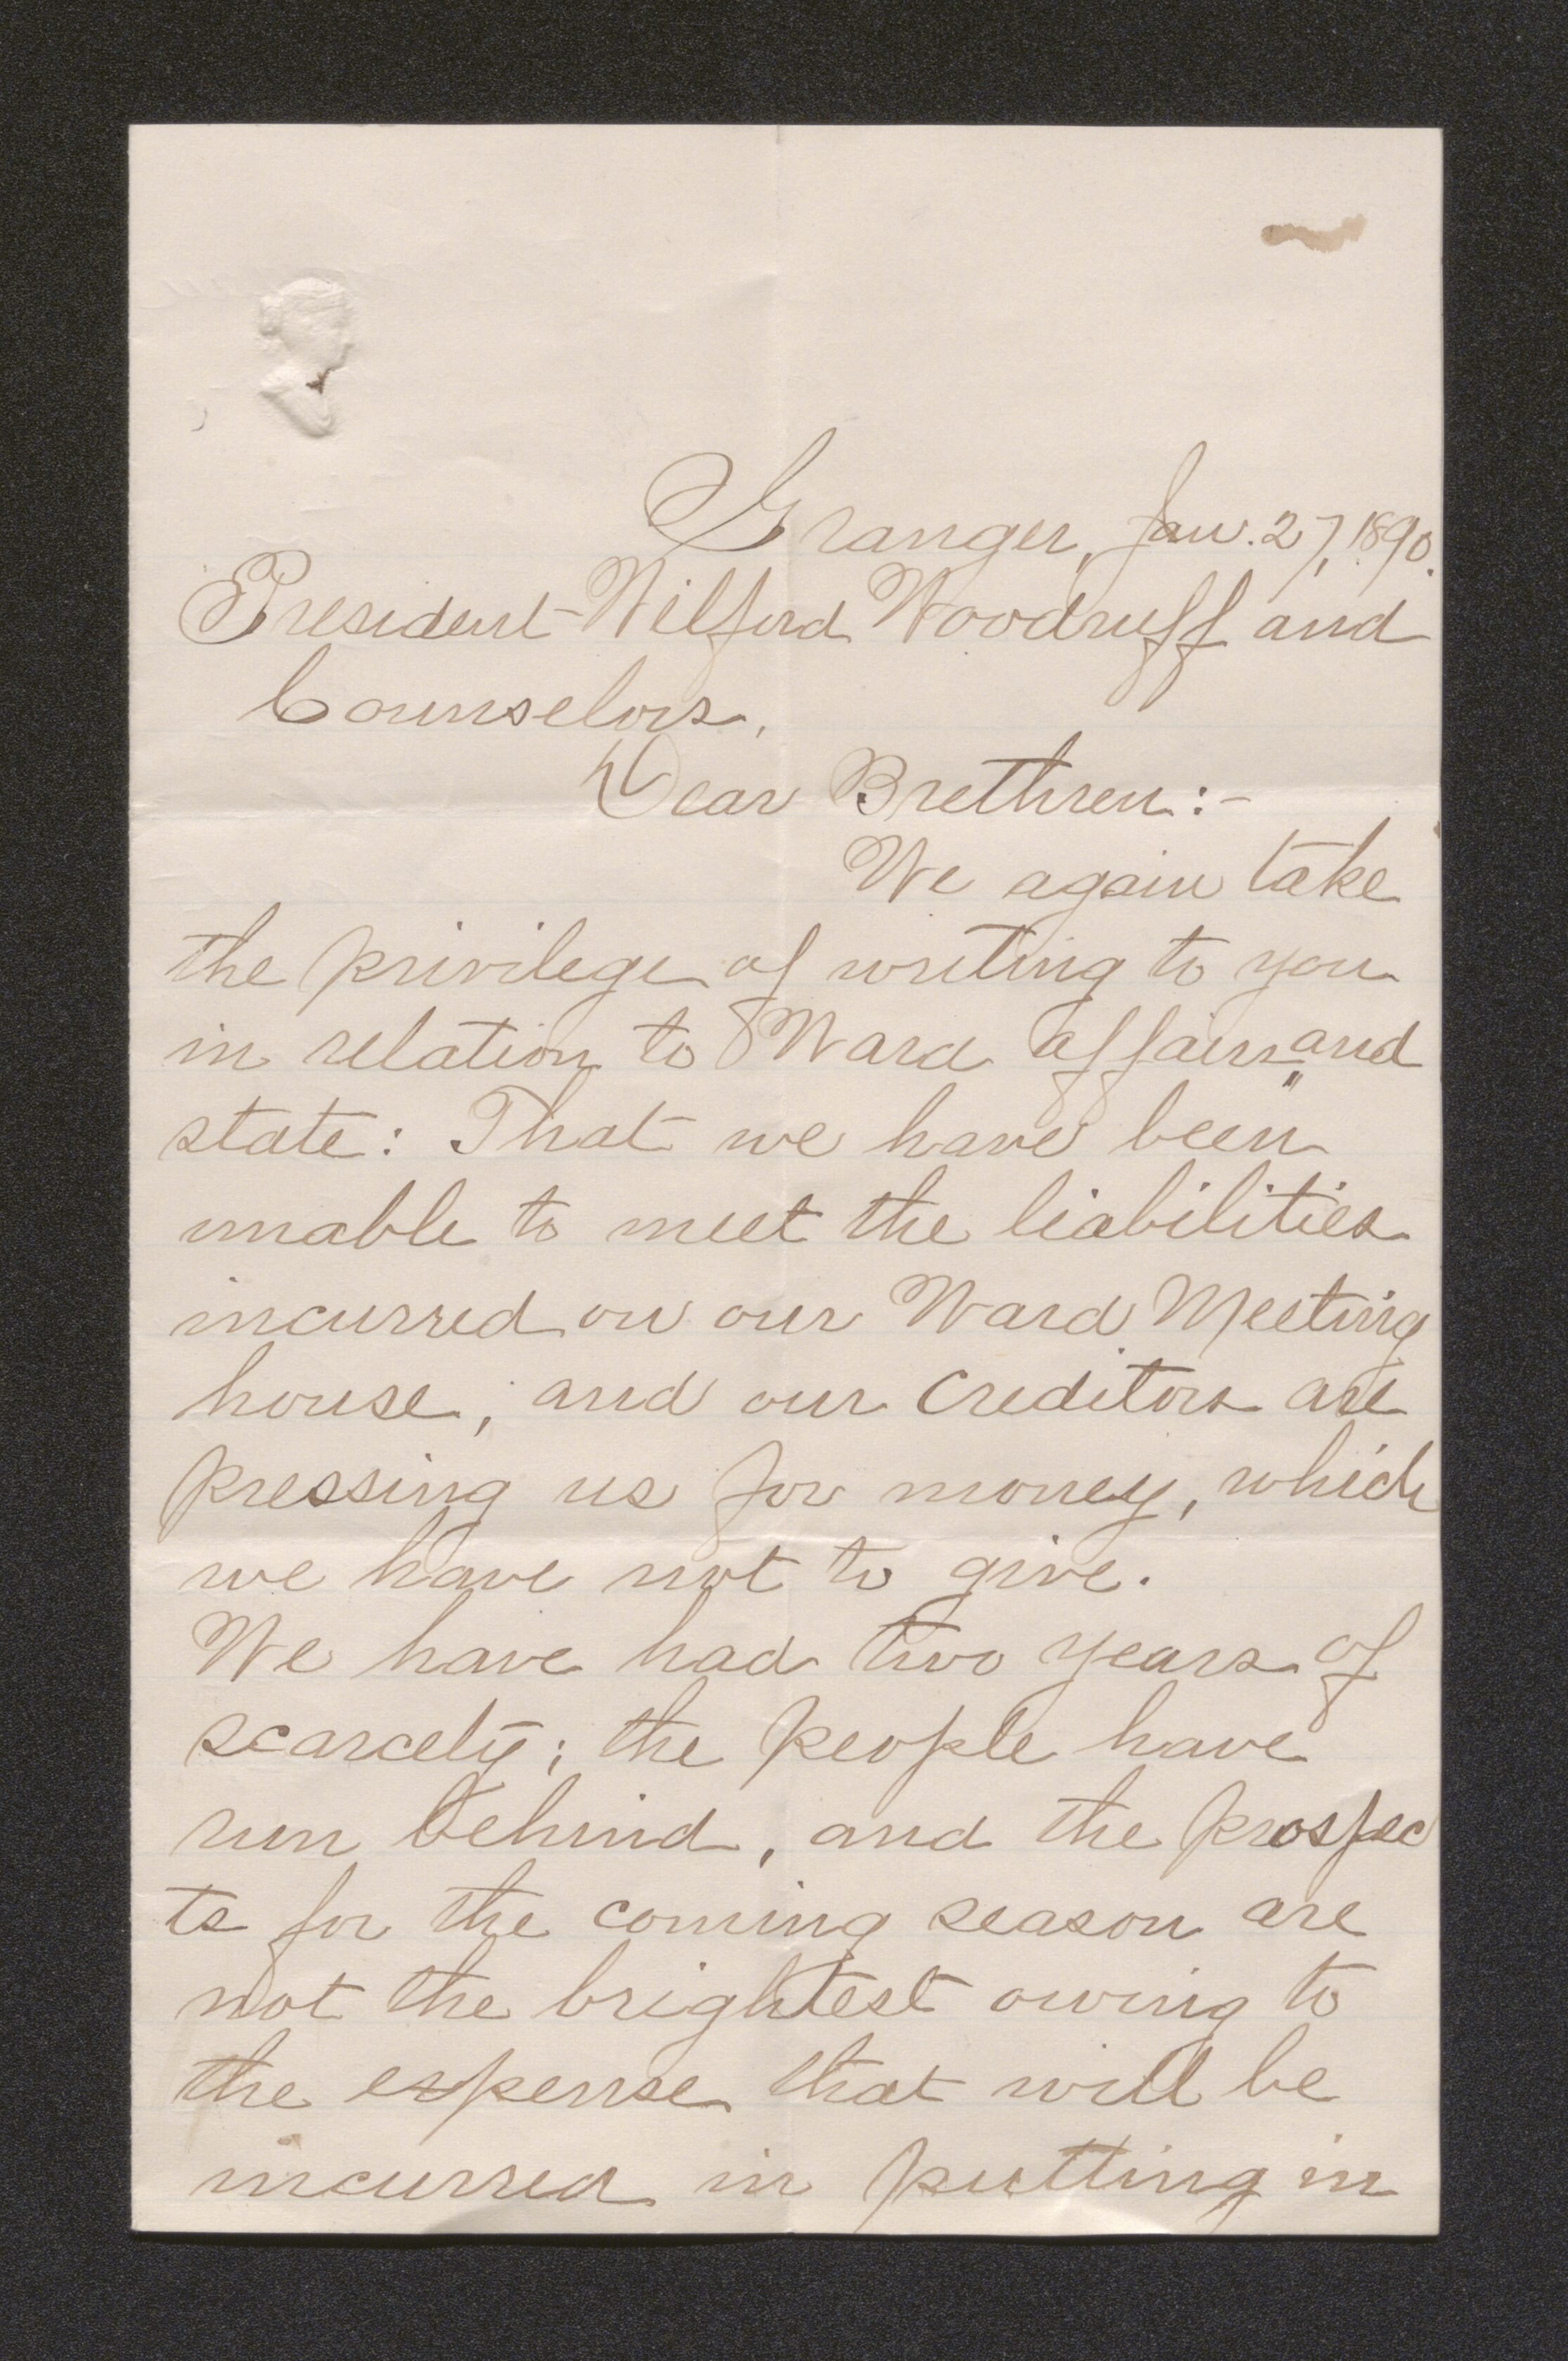 Granger, Jan. 27, 1890.
President Wilford Woodruff and
Counselors,
Dear Brethren:-
We again take
the privilege of writing to you
in relation to Ward affairs and
state: That we have been
unable to meet the liabilities
incurred on our Ward Meeting
house, and our creditors are
pressing us for money, which
we have not to give.
We have had two years of
scarcety; the people have
run behind, and the prospec
ts for the coming season are
not the brightest owing to
the expense that will be
incurred in putting in